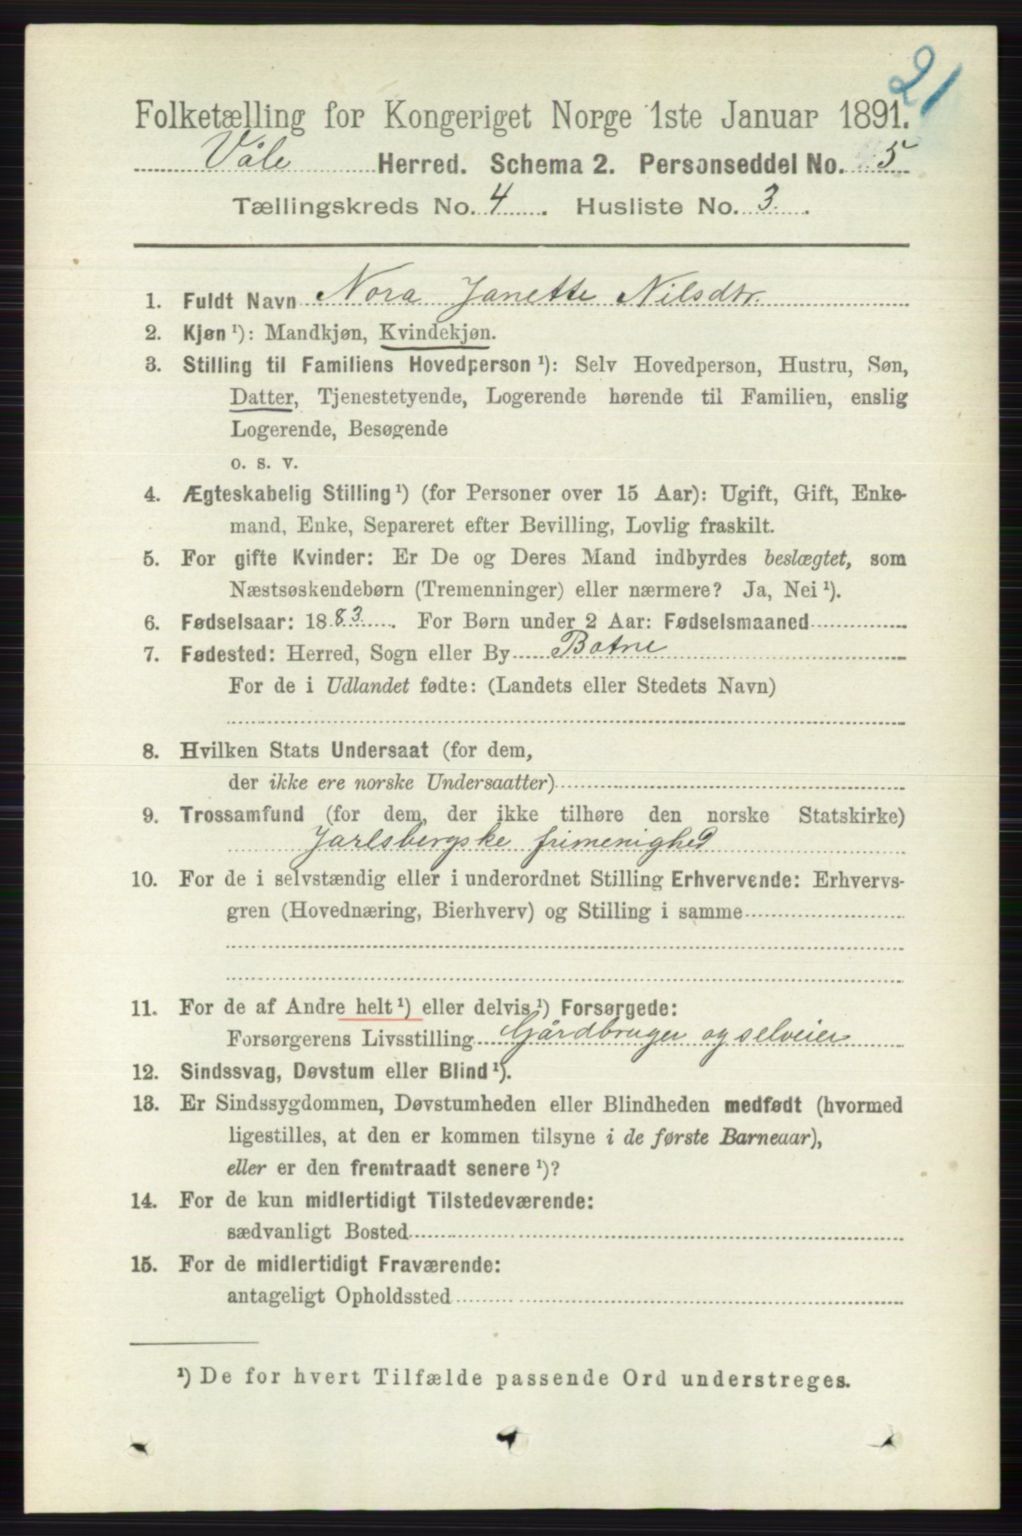 21
Folketælling for Kongeriget Norge 1ste Januar 1891.
Våle Herred. Schema 2. Personseddel No. 5
Tællingskreds No. 4. Husliste No. 3.
1. Fuldt Navn Nora Janette Nilsdtr.
2. Kjøn ¹): Mandkjøn, Kvindekjøn.
3. Stilling til Familiens Hovedperson ¹): Selv Hovedperson, Hustru, Søn,
Datter, Tjenestetyende, Logerende hørende til Familien, enslig
Logerende, Besøgende
o. s. v.
4. Ægteskabelig Stilling ¹) (for Personer over 15 Aar): Ugift, Gift, Enke-
mand, Enke, Separeret efter Bevilling, Lovlig fraskilt.
5. For gifte Kvinder: Er De og Deres Mand indbyrdes beslægtet, som
Næstsøskendebørn (Tremenninger) eller nærmere? Ja, Nei ¹).
6. Fødselsaar: 1883. For Børn under 2 Aar: Fødselsmaaned
7. Fødested: Herred, Sogn eller By Botne
For de i Udlandet fødte: (Landets eller Stedets Navn)
8. Hvilken Stats Undersaat (for dem,
der ikke ere norske Undersaatter)
9. Trossamfund (for dem, der ikke tilhøre den norske Statskirke)
Jarlsbergske frimenighed
10. For de i selvstændig eller i underordnet Stilling Erhvervende: Erhvervs-
gren (Hovednæring, Bierhverv) og Stilling i samme
11. For de af Andre helt ¹) eller delvis ¹) Forsørgede:
Forsørgerens Livsstilling Gårdbruger og selveier
12. Sindssvag, Døvstum eller Blind ¹).
13. Er Sindssygdommen, Døvstumheden eller Blindheden medfødt (hvormed
ligestilles, at den er kommen tilsyne i de første Barneaar),
eller er den fremtraadt senere ¹)?
14. For de kun midlertidigt Tilstedeværende:
sædvanligt Bosted
15. For de midlertidigt Fraværende:
antageligt Opholdssted
¹) De for hvert Tilfælde passende Ord understreges.